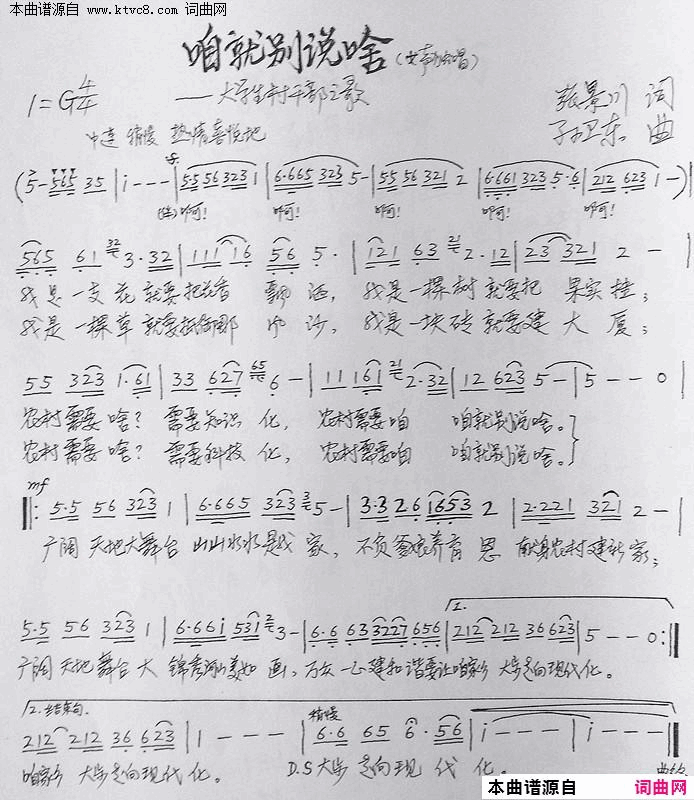 本曲谱源自
www.ktvc8.com 词曲网
咱就别说啥(女声独唱)
1=G 4/4 ——大学生村干部之歌 张景川 词
中速 稍慢 热情喜悦地 孙卫东 曲
(5- 565 35 | i - - - | 55 56 323 1 | 6·665 323 5- | 55 56 321 2 | 6·661 323 5·6 | 212 623 1 -)
(伴)啊! 啊! 啊! 啊! 啊!
565 61 32 3·32 | 111 16 56 5· | 121 63 21 2·12 | 23 321 2 - |
我是一支花就要把花香 飘洒, 我是一棵树就要把 果实挂;
我是一棵草就要抵御那 沙, 我是一块砖就要建 大 厦;
55 323 1·61 | 33 627 65 6- | 11 161 21 2·32 | 12 623 5- | 5 - - 0 |
农村需要啥? 需要知识 化, 农村需要咱 咱就别说啥。
农村需要啥? 需要科技 化, 农村需要咱 咱就别说啥。
mf
5·5 56 323 1 | 6·665 323 3 5- | 3·3 26 1653 2 | 2·221 321 2 - |
广阔 天地大舞台 山山水水是我 家, 不负爹娘养育 恩 献身农村建新家;
1.
5·5 56 323 1 | 6·66i 531 2 3- | 6·6 63 3227 656 | 212 212 36 623 | 5 - - 0 :|
广阔 天地 舞台 大 锦秀河山美如 画, 万众 一心建和谐要让咱家乡 大步走向现代化。
2.结束句. 稍慢
212 212 36 623 | 1 - - - | 6·6 65 6·56 | i - - - | i - - - ||
咱家乡 大步走向现代化。 D.S大步 走向现 代 化。
本曲谱源自 词曲网